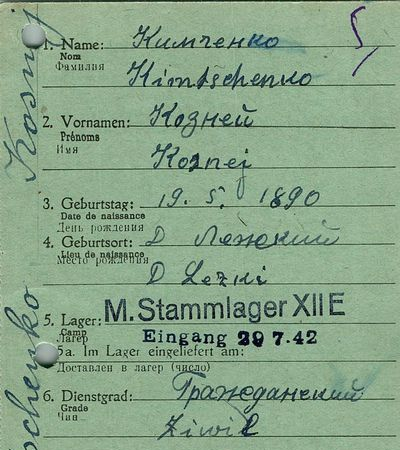 5
1. Name: Кимченко
Nom
Фамилия Kimtschenko
2. Vornamen: Козней
Prénoms
Имя Kosnej
3. Geburtstag: 19. 5. 1890
Date de naissance
День рождения
4. Geburtsort: Д Лежкий
Lieu de naissance
Место рождения D Lezki
M. Stammlager XII E
5. Lager:
Camp
Лагерь Eingang 29 7.42
5a. Im Lager eingeliefert am:
Доставлен в лагер (число)
6. Dienstgrad: Гражданский
Grade
Чин Ziwil